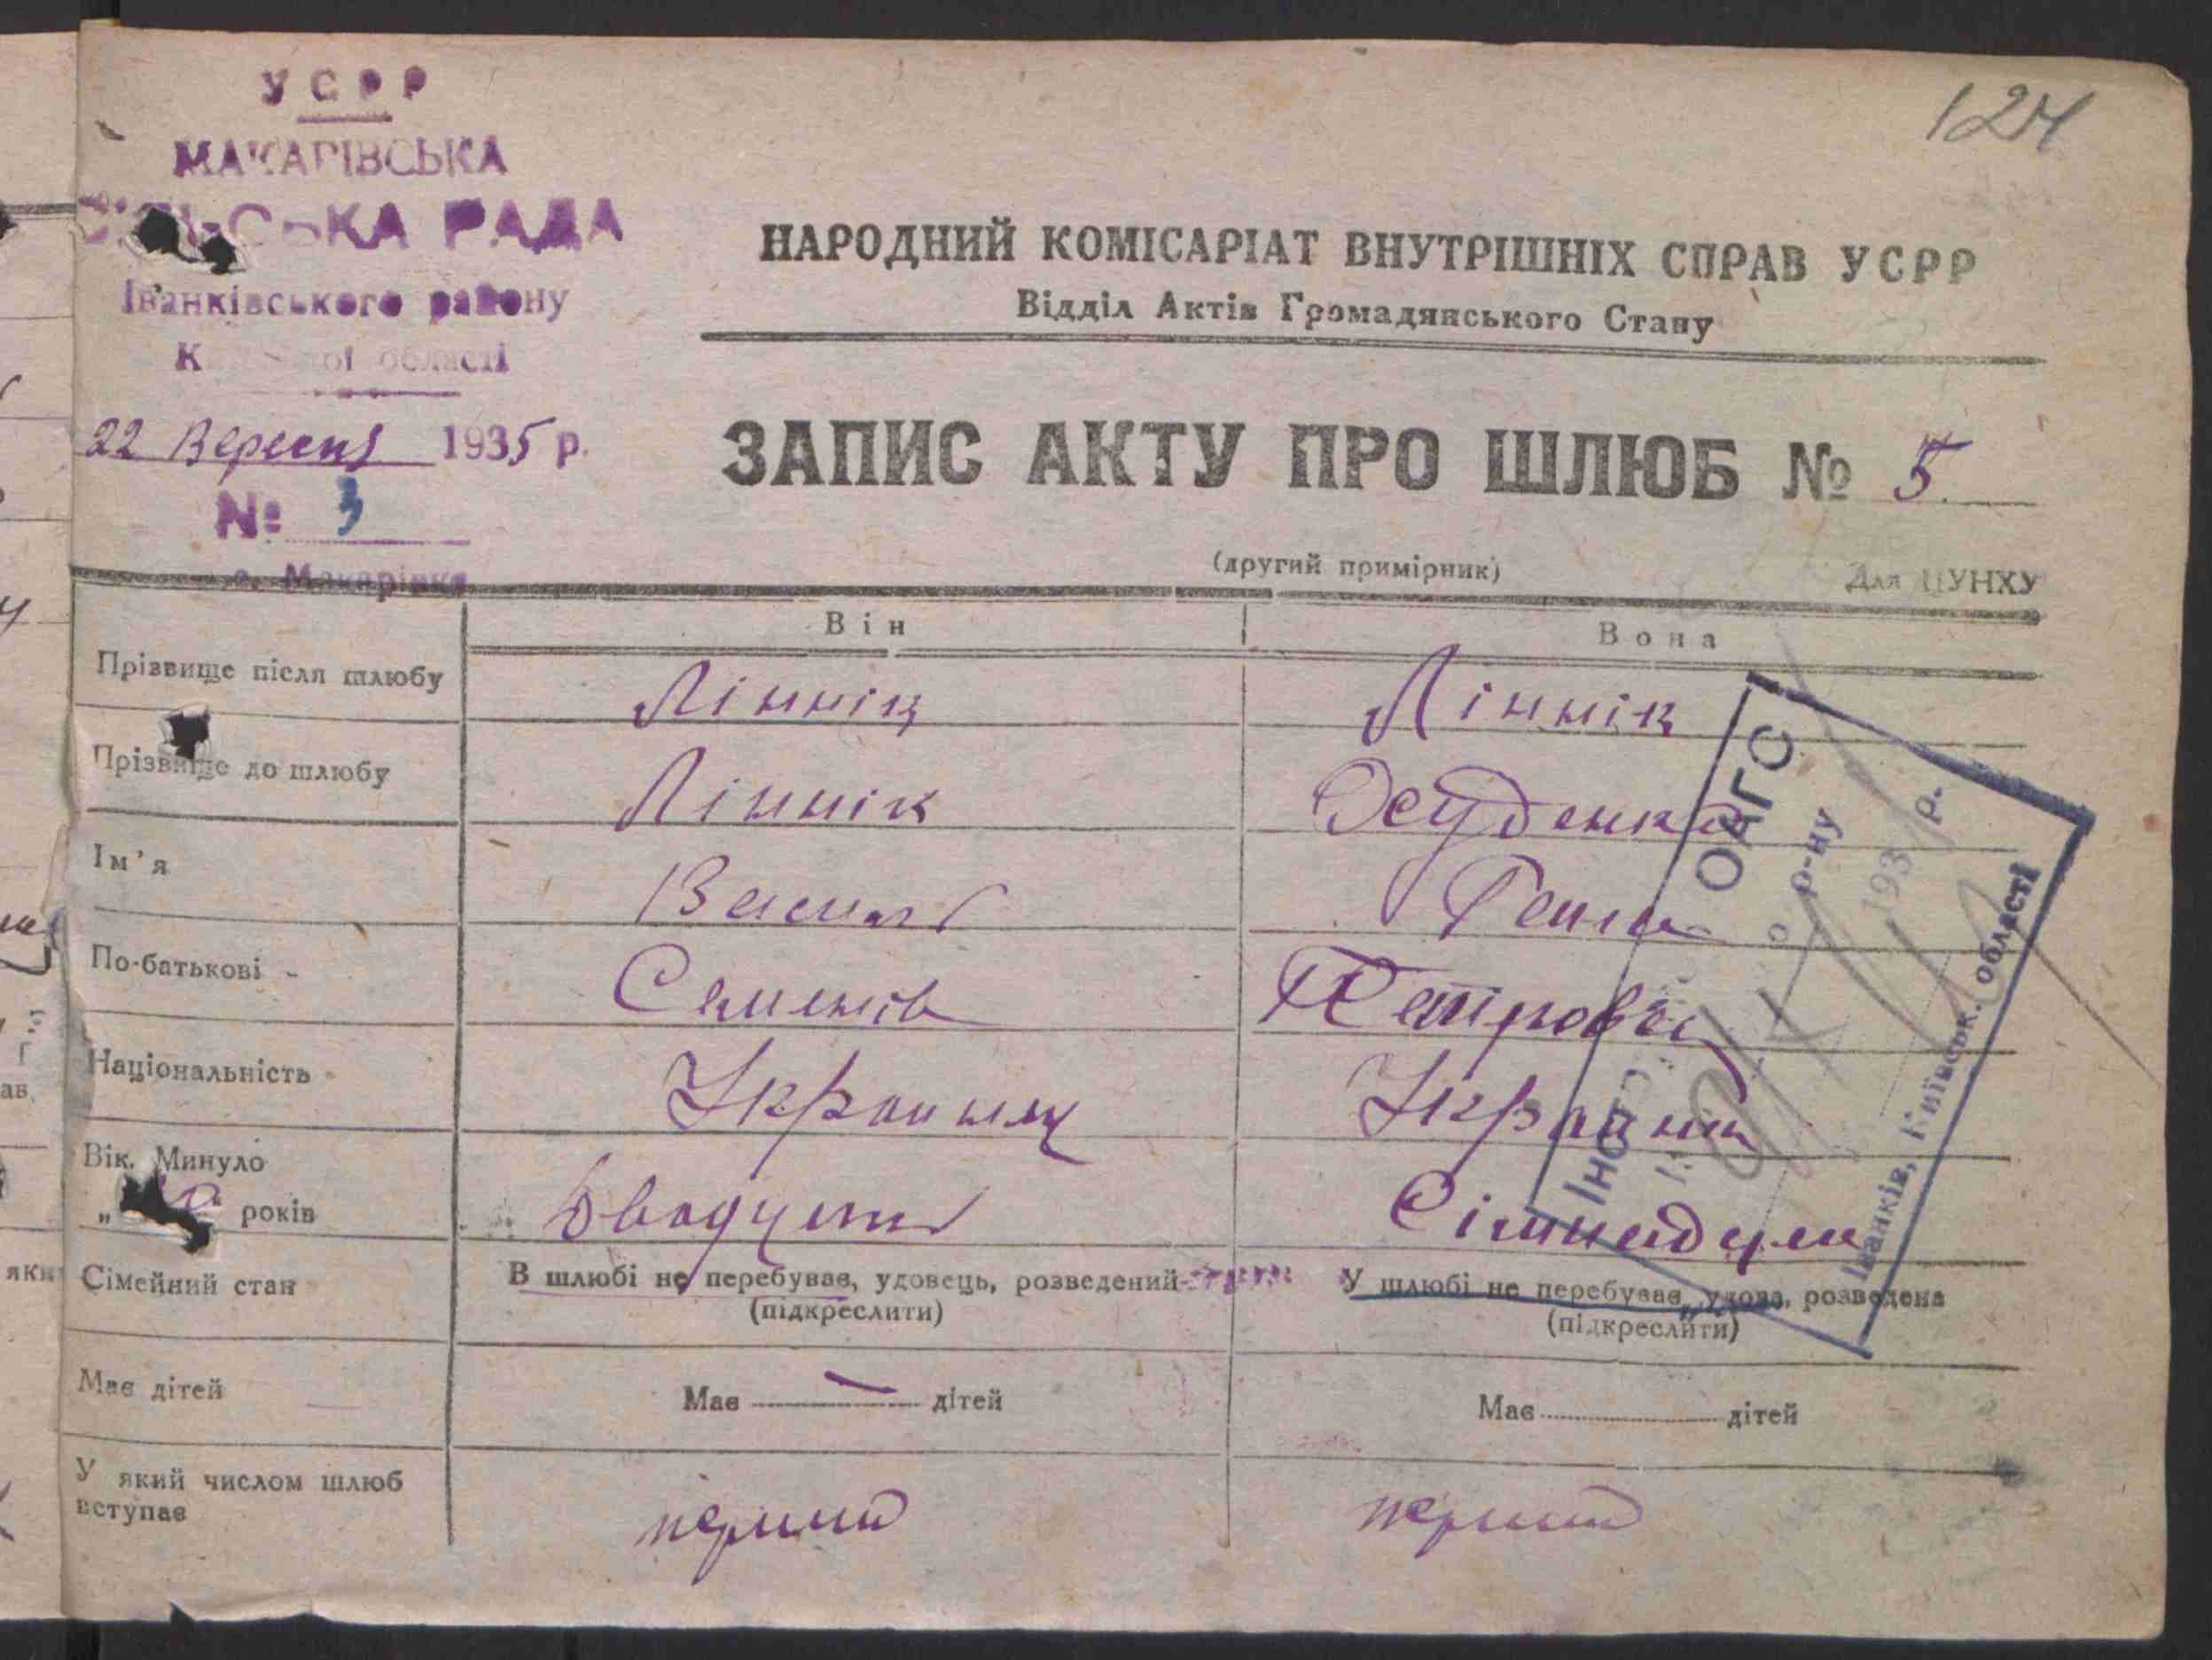 124
УСРР
МАКАРІВСЬКА
СІЛЬСЬКА РАДА
Іванківського району
К ої області
22 Вересня 1935 р.
№ 3
с. Макарівка
НАРОДНИЙ КОМІСАРІАТ ВНУТРІШНІХ СПРАВ УСРР
Відділ Актів Громадянського Стану
ЗАПИС АКТУ ПРО ШЛЮБ № 5.
(другий примірник)
Для ЦУНХУ
Він Вона
Прізвище після шлюбу Ліннік Ліннік
Прізвище до шлюбу Ліннік
Ім'я Василь
По-батькові Семенів Петрові
Національність
Вік. Минуло
" " років Двадцять Сімнадцять
Сімейний стан В шлюбі не перебував, удовець, розведений У шлюбі не перебувае, удова, розведена
(підкреслити) (підкреслити)
Має дітей Має — дітей Має дітей
У який числом шлюб перший перший
вступає
ОАГС
р-ну
193 р.
Іванків, Київськ. області